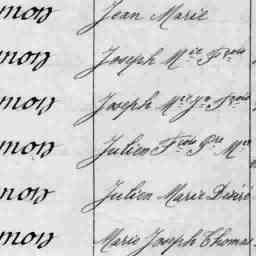 mon Jean Marie
mon Joseph Mie Fçois
mon Joseph Mie Jn Fçois
mon Julien Fçois Pre Mie
mon Julien Marie Désiré
mon Marie Joseph Thomas